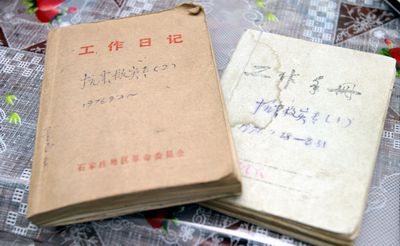 工作日记
抗震救灾 (2)
1976.9.1—
石家庄地区革命委员会
工作手册
抗震救灾 (1)
7.28—8.31